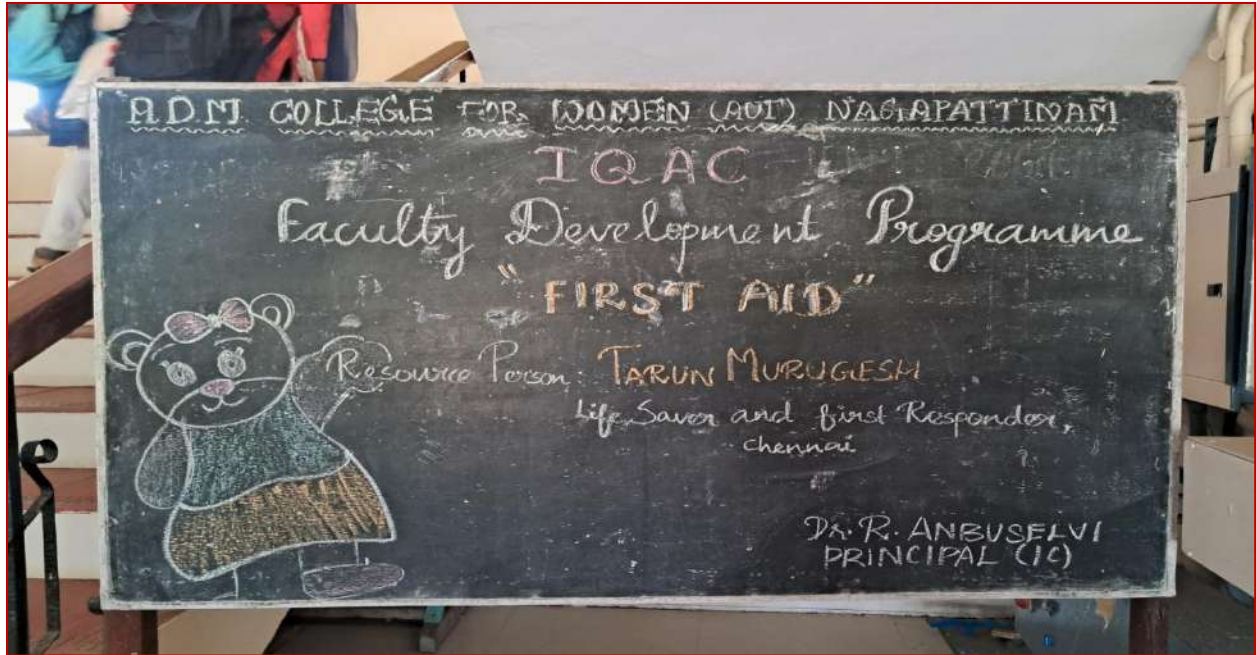 A.D.M. COLLEGE FOR WOMEN (AUT) NAGAPATTINAM
IQAC
Faculty Development Programme
"FIRST AID"
Resource Person: TARUN MURUGESH
Life Saver and first Responder,
chennai
Dr. R. ANBUSELVI
PRINCIPAL (IC)